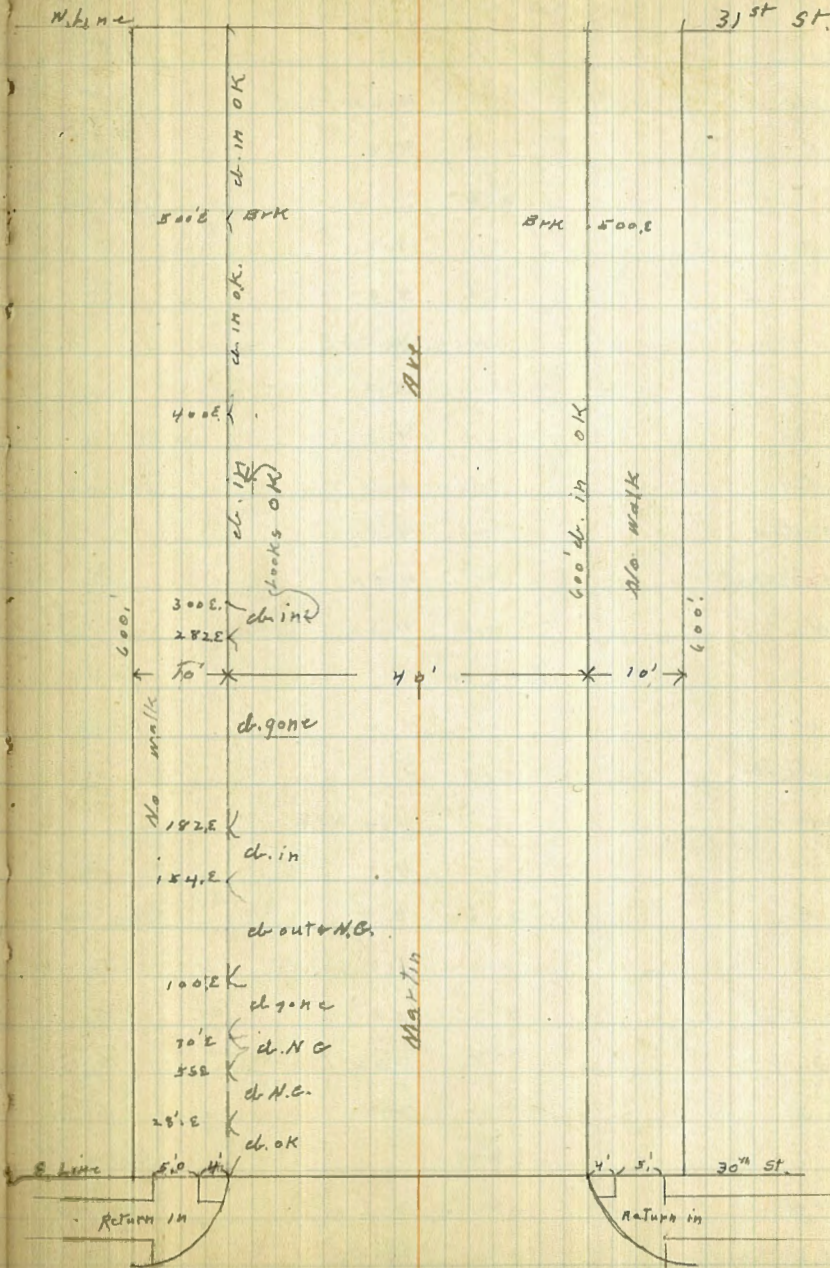 W. Line
31st St.
cb. in OK
500'E
Brk
Brk
500.E
cb. in OK.
Ave
400E.
cb. in
Looks OK
600' cb. in OK.
No walk
300E.
cb. in
282E
600.'
600'.
10'
40'
10'
No walk
cb. gone
182.E
cb. in
154.E
cb out & N.G.
100'.E
cb gone
Martin
70'E
cb. N G
55E
cb N.G.
28'.E
cb. OK
E Line
5.0
4'
4'
5'
30th St.
Return in
Return in